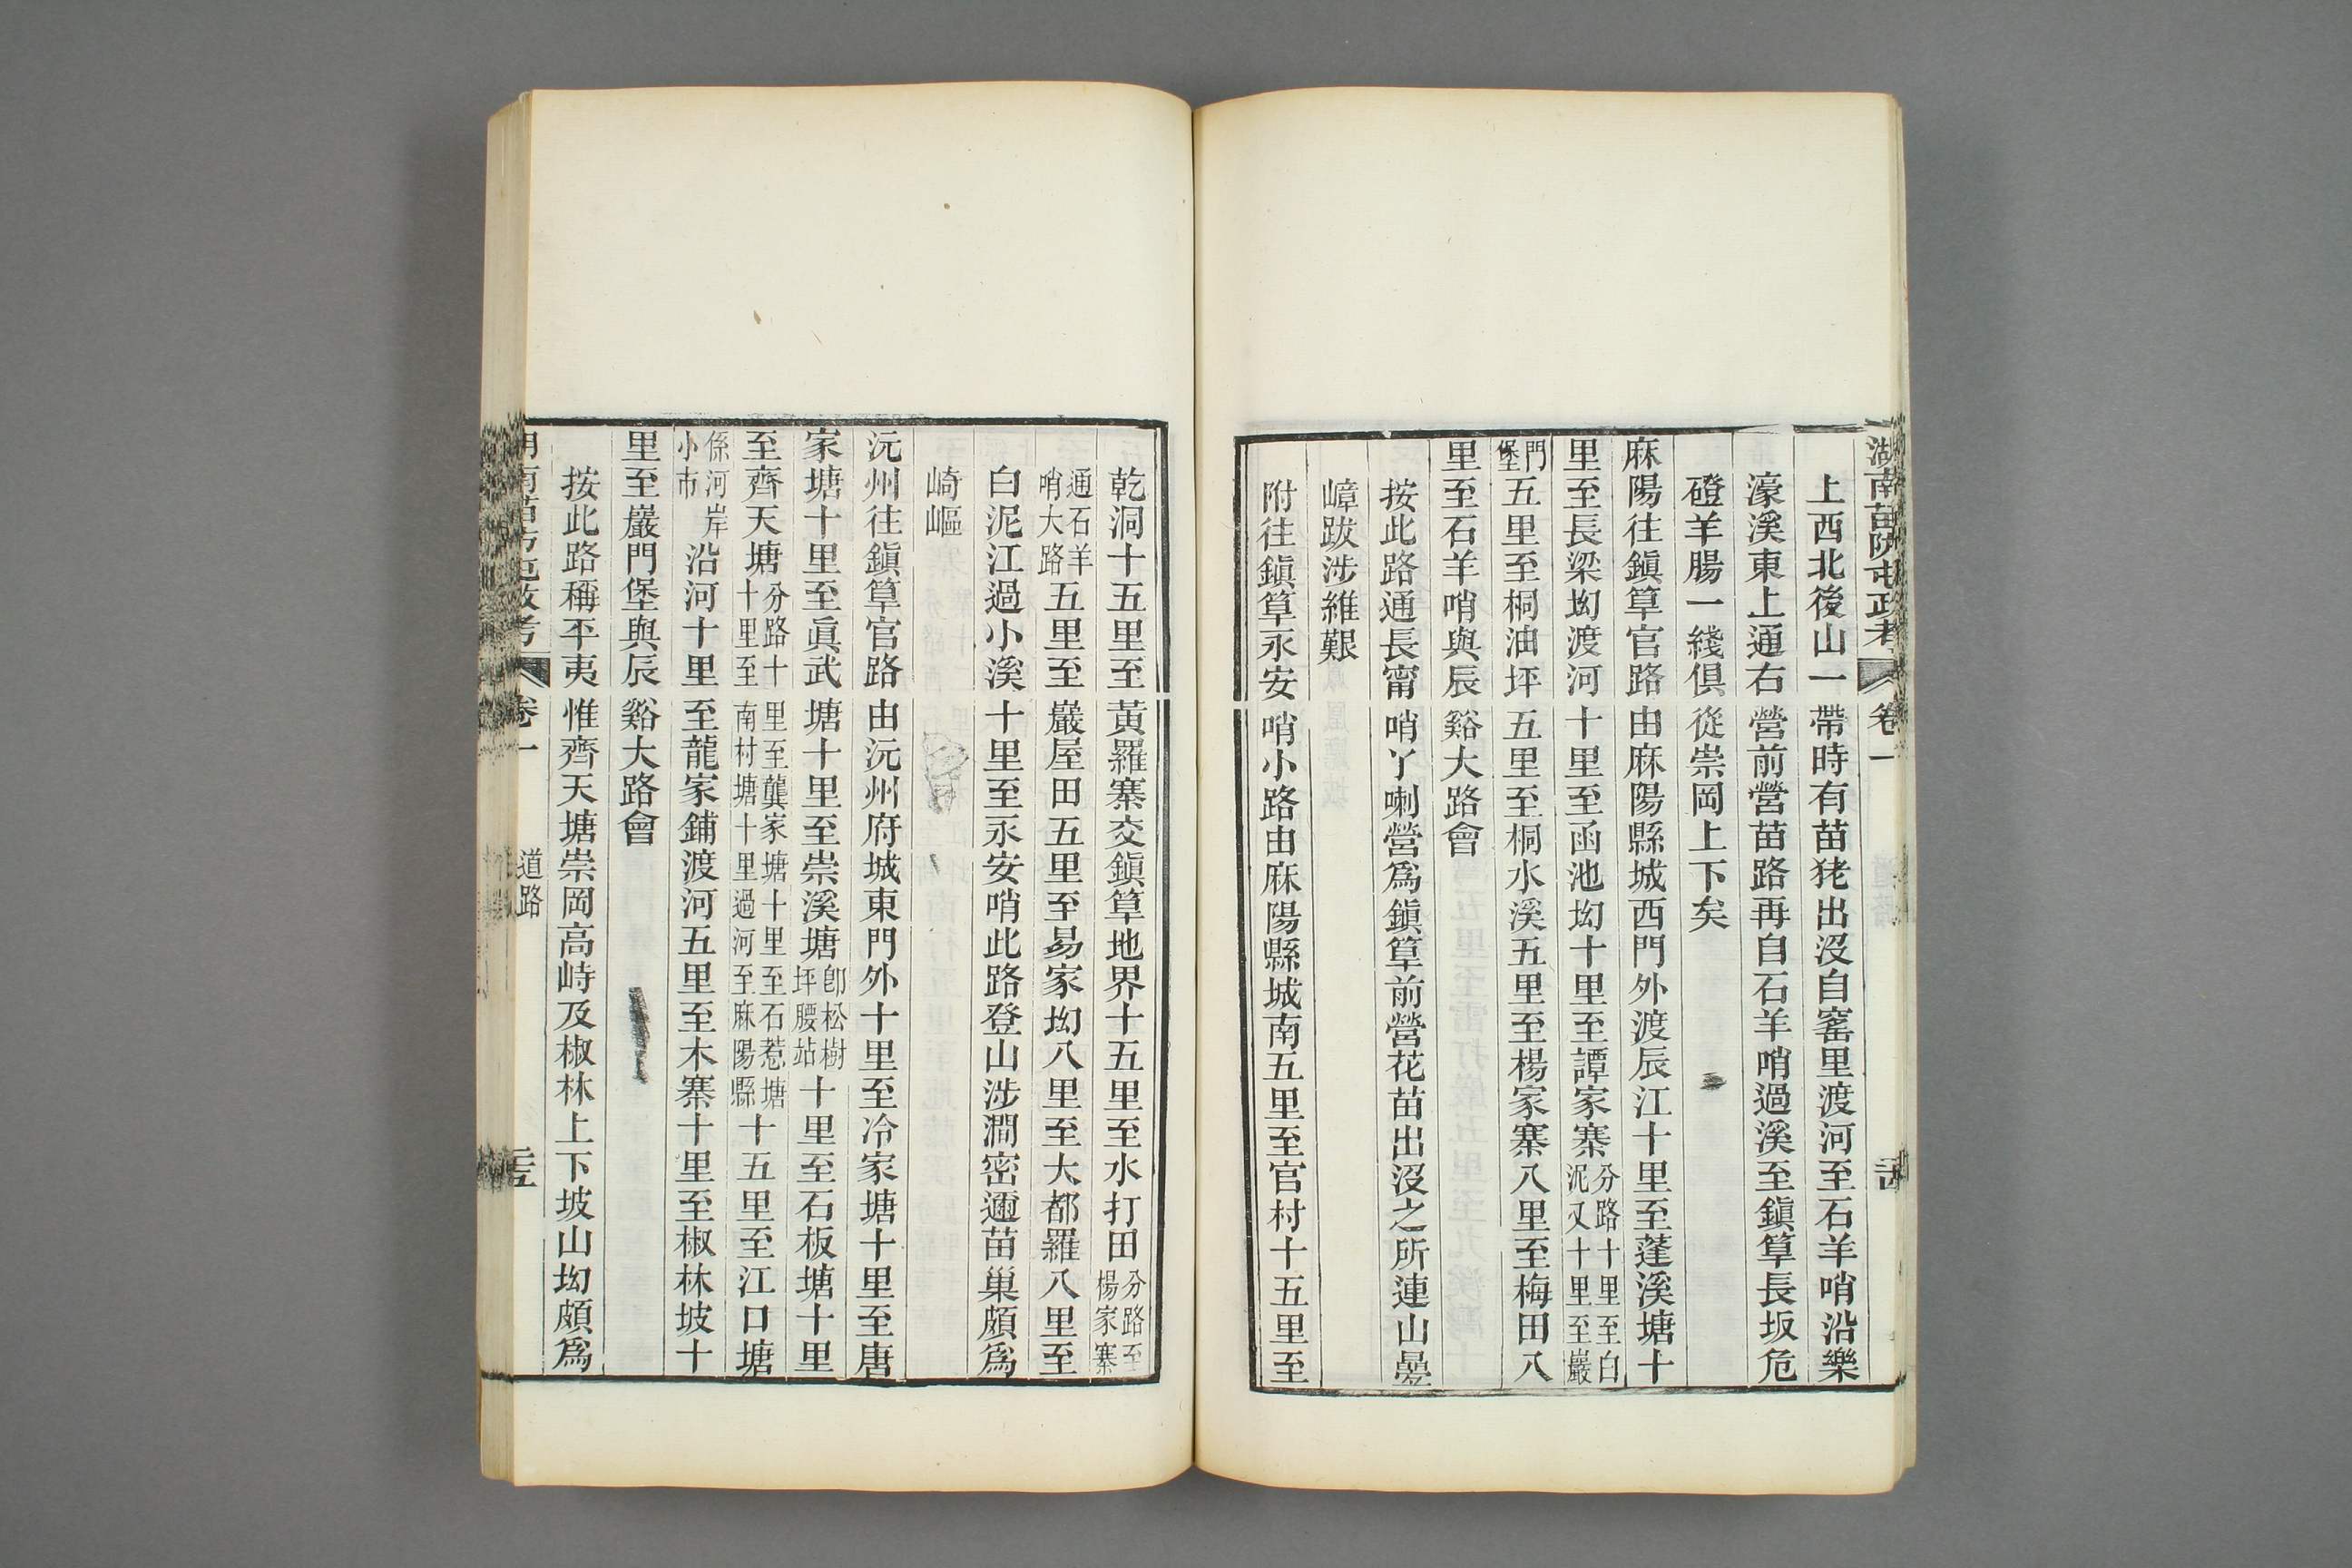 湖南苗防屯政考 卷一
上西北後山一帶時有苗狫出沒自窰里渡河至石羊哨沿樂
濠溪東上通右營前營苗路再自石羊哨過溪至鎭筸長坂危
磴羊腸一綫俱從崇岡上下矣
麻陽往鎭筸官路由麻陽縣城西門外渡辰江十里至蓬溪塘十
里至長梁㘭渡河十里至函池㘭十里至譚家寨分路十里至白泥又十里至巖
門堡五里至桐油坪五里至桐水溪五里至楊家寨八里至梅田八
里至石羊哨與辰谿大路會
按此路通長甯哨丫喇營爲鎭筸前營花苗出沒之所連山曡
嶂跋涉維艱
附往鎭筸永安哨小路由麻陽縣城南五里至官村十五里至
乾洞十五里至黃羅寨交鎭筸地界十五里至水打田分路至楊家寨
通石羊哨大路五里至巖屋田五里至易家㘭八里至大都羅八里至
白泥江過小溪十里至永安哨此路登山涉澗密邇苗巢頗爲
崎嶇
沅州往鎭筸官路由沅州府城東門外十里至冷家塘十里至唐
家塘十里至眞武塘十里至崇溪塘卽松樹坪腰站十里至石板塘十里
至齊天塘分路十里至龔家塘十里至石惹塘十里至南村塘十里過河至麻陽縣十五里至江口塘
係河岸小市沿河十里至龍家鋪渡河五里至木寨十里至椒林坡十
里至巖門堡與辰谿大路會
按此路稱平夷惟齊天塘崇岡高峙及椒林上下坡山㘭頗爲
卷一 道路